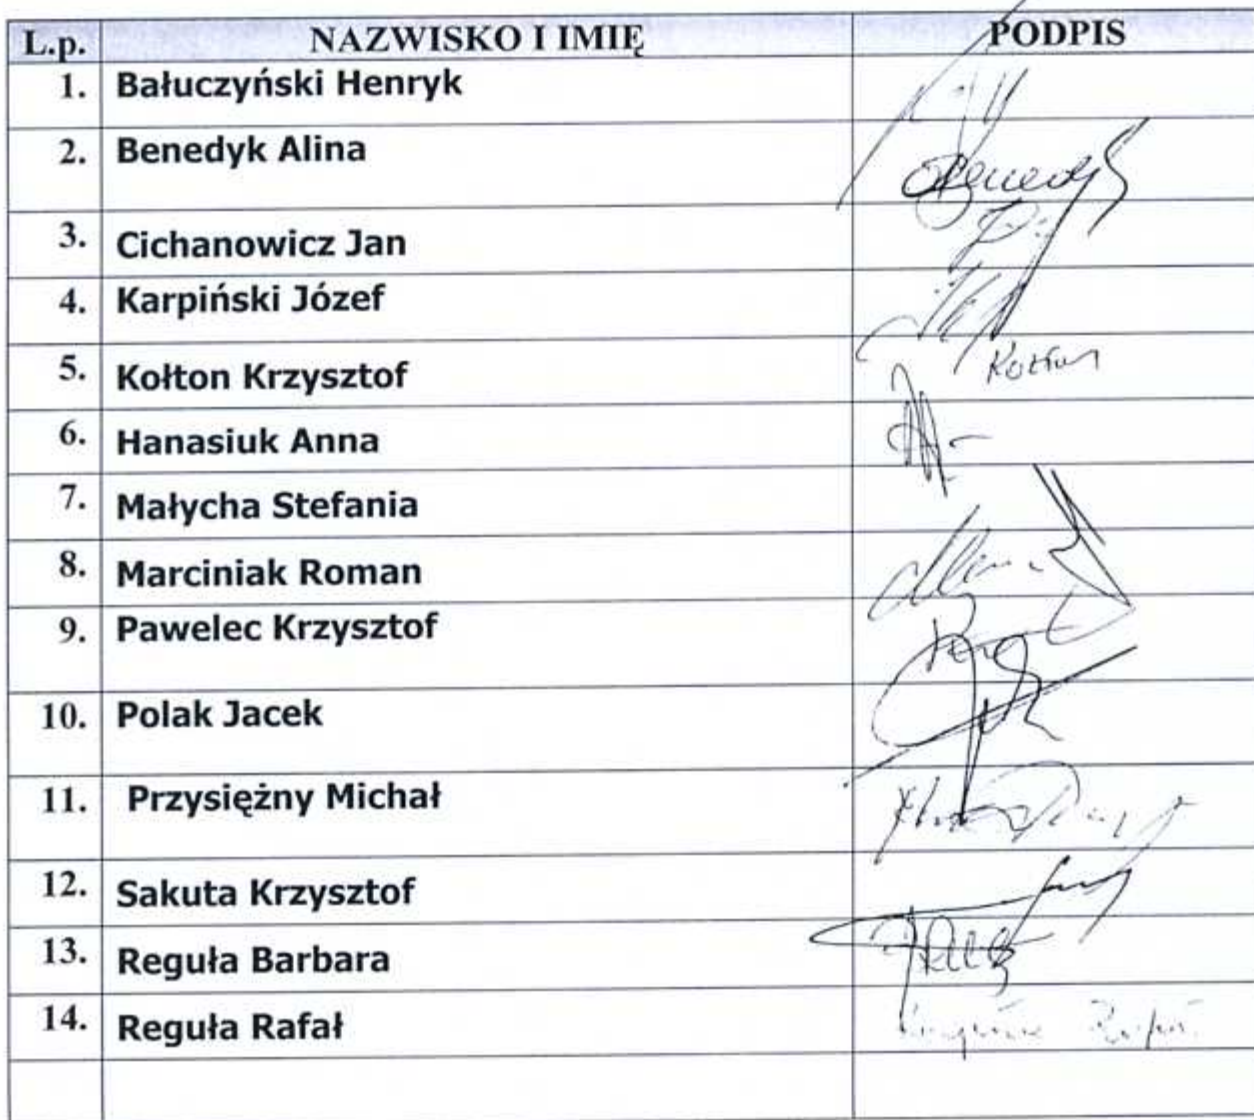 L.p. NAZWISKO I IMIĘ PODPIS
1. Bałuczyński Henryk
2. Benedyk Alina Benedyk
3. Cichanowicz Jan
4. Karpiński Józef
5. Kołton Krzysztof Kołton
6. Hanasiuk Anna
7. Małycha Stefania
8. Marciniak Roman
9. Pawelec Krzysztof
10. Polak Jacek
11. Przysiężny Michał
12. Sakuta Krzysztof
13. Reguła Barbara
14. Reguła Rafał